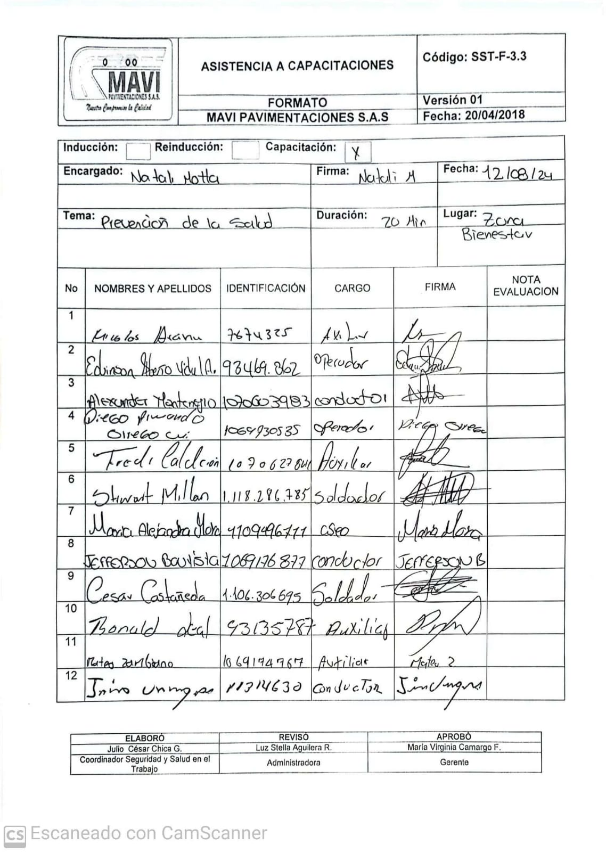 MAVI
PAVIMENTACIONES S.A.S.
Nuestro Compromiso la Calidad
ASISTENCIA A CAPACITACIONES
Código: SST-F-3.3
FORMATO
Versión 01
MAVI PAVIMENTACIONES S.A.S
Fecha: 20/04/2018
Inducción: Reinducción: Capacitación: X
Encargado: Natali Motta Firma: Natali M Fecha: 12/08/24
Tema: Prevencion de la Salud Duración: 20 Min Lugar: Zona
Bienestar
No NOMBRES Y APELLIDOS IDENTIFICACIÓN CARGO FIRMA NOTA EVALUACION
1 7674325
2 Edinson 93469.862 operador
3 Alexander Montenegro 1070603983 conductor
4 Diego
1069930535 operador Diego
5 Fredi Calderón Auxiliar
6 Stiwart Millan 1.118.286.785 Soldador
7 Maria Alejandra Mora Maria Mora
8 JEFFERSON Bautista 1069176877 conductor JEFFERSON B
9 Cesar Castañeda 1.106.306695 Soldador
10 Ronald 93135787 Auxiliar
11 Auxiliar
12 conductor
ELABORÓ REVISÓ APROBÓ
Julio César Chica G. Luz Stella Aguilera R. María Virginia Camargo F.
Coordinador Seguridad y Salud en el Trabajo Administradora Gerente
CS Escaneado con CamScanner